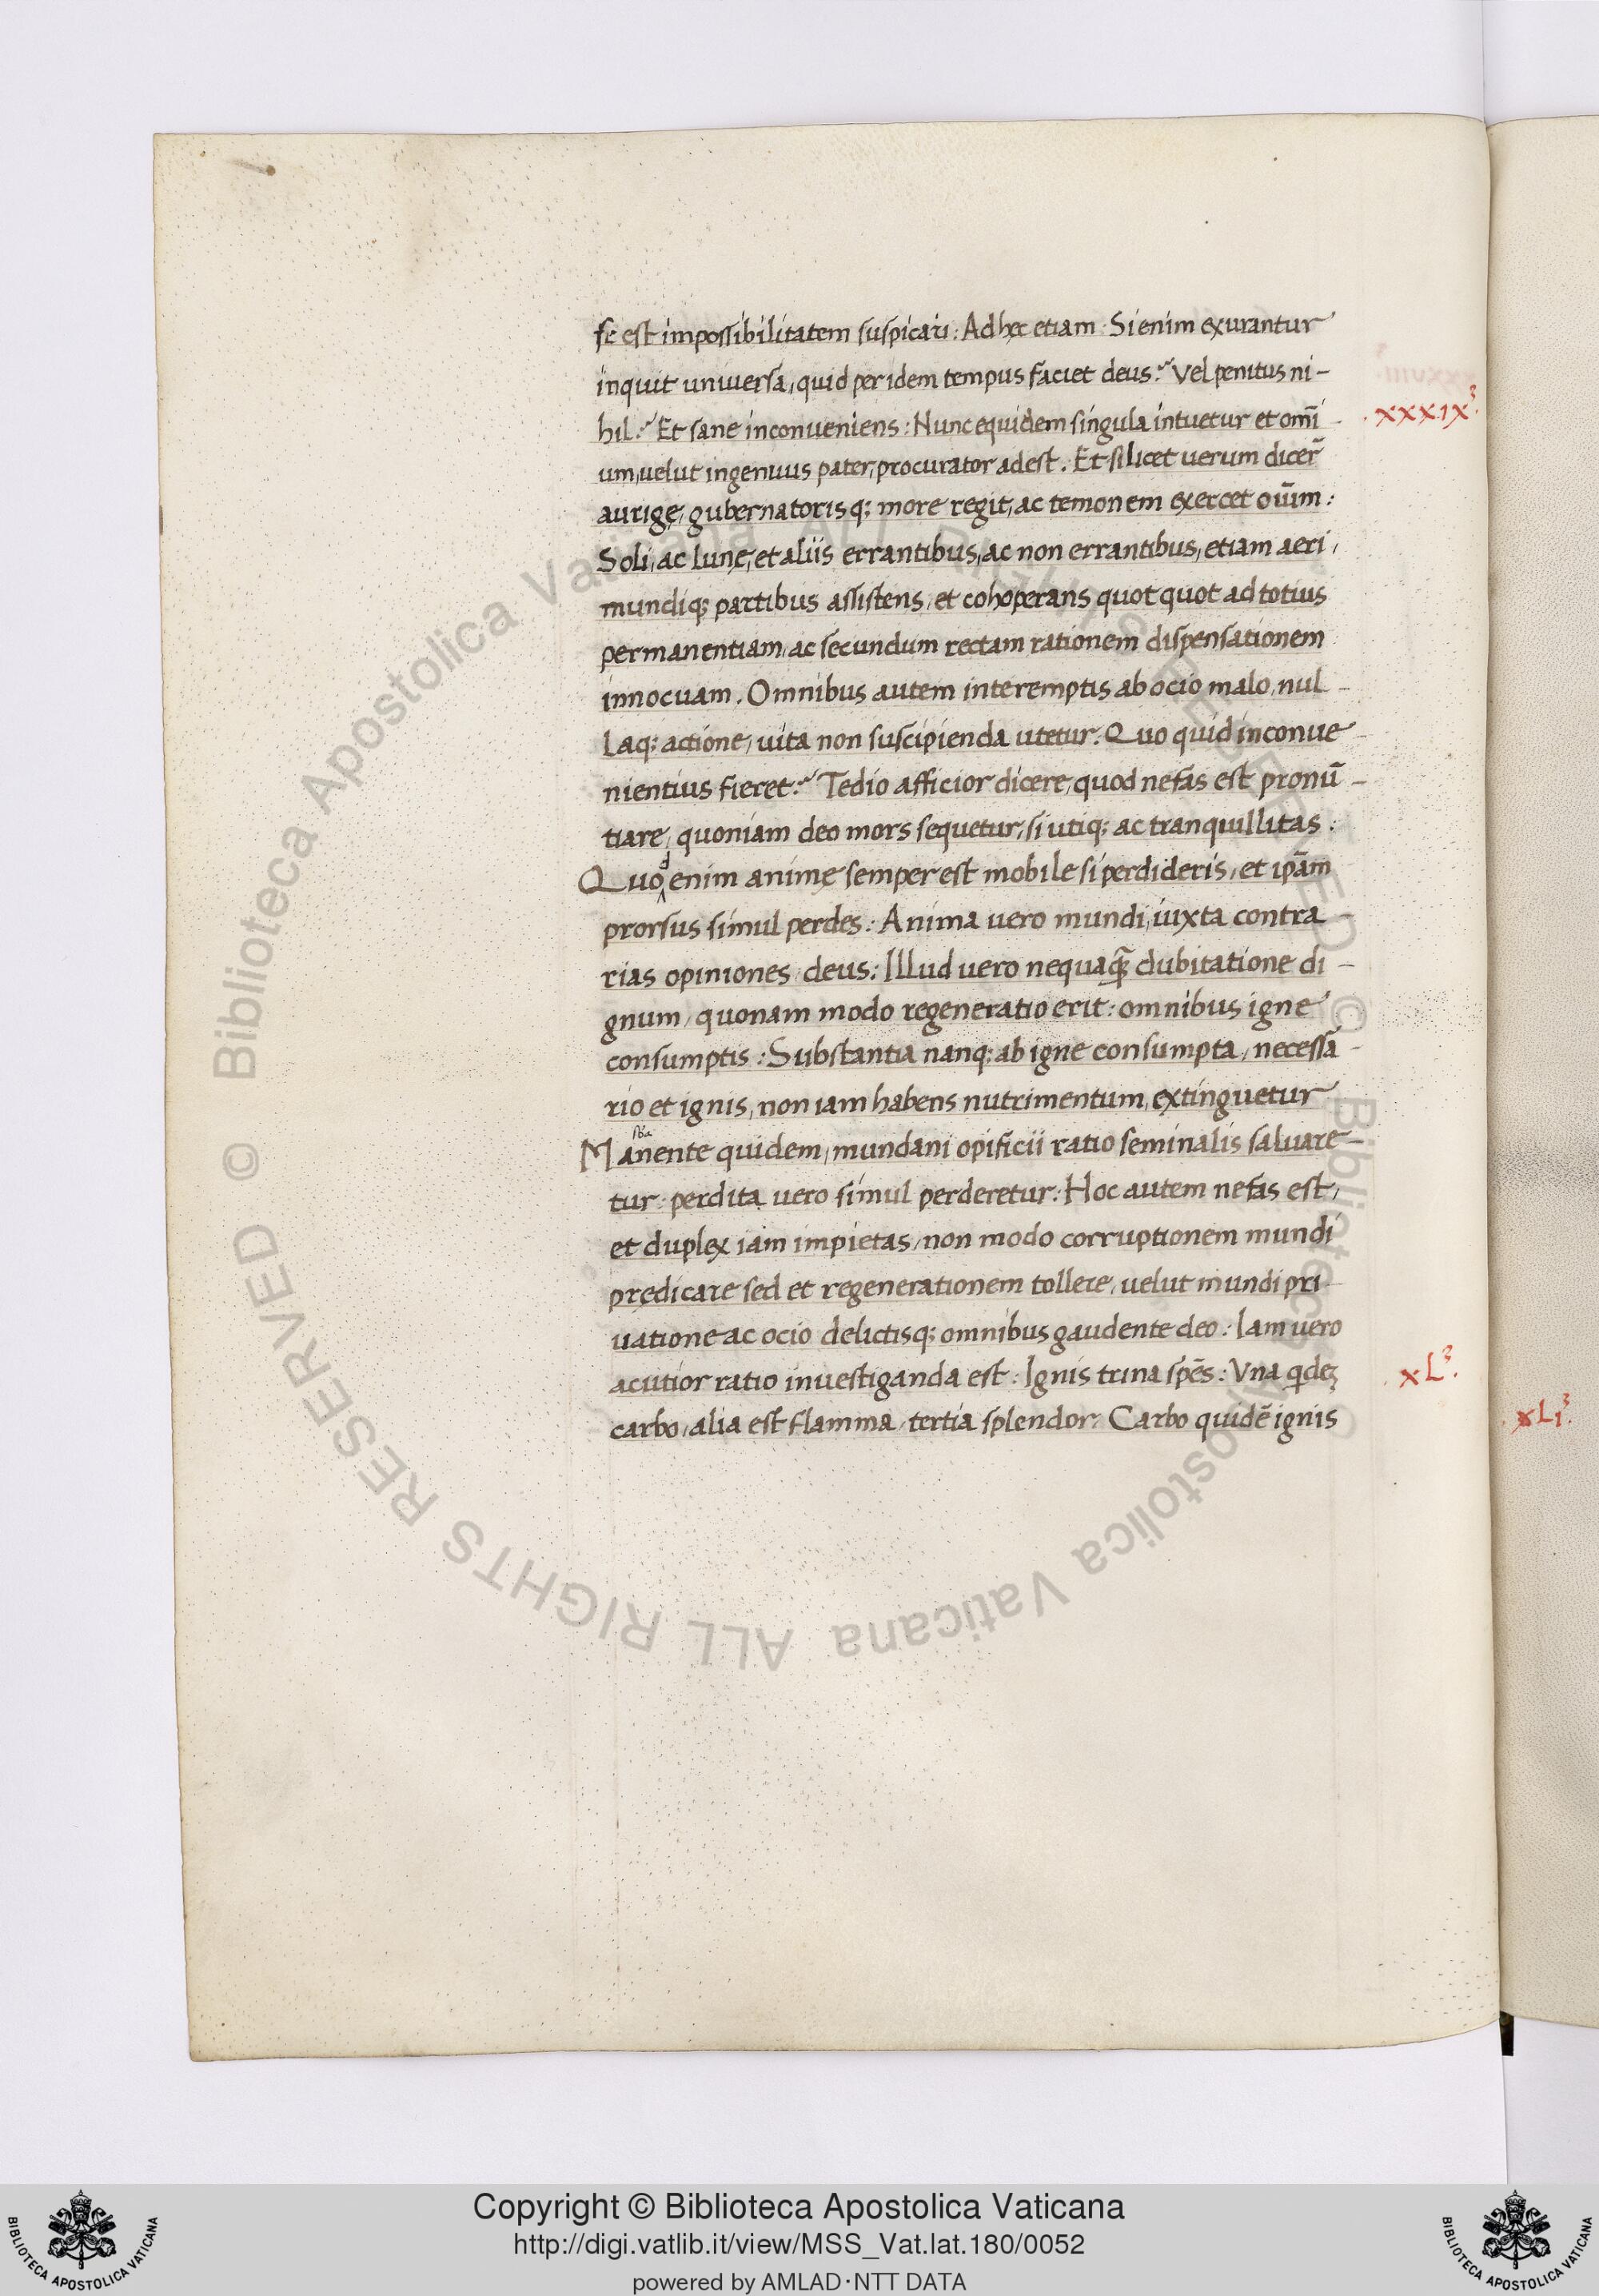 se est impossibilitatem suspicari: Ad hęc etiam. Si enim exurantur
inquit universa, quid per idem tempus faciet deus? Vel penitus ni-
hil? Et sane inconveniens: Nunc equidem singula intuetur et omī -
um, velut ingenuus pater, procurator adest. Et si licet uerum dicer̄
aurigę, gubernatorisq; more regit, ac temonem exercet oīum:
Soli, ac Lunę, et aliis errantibus, ac non errantibus, etiam aeri,
mundiq; partibus assistens, et cohoperans quot quot ad totius
permanentiam, ac secundum rectam rationem dispensationem
innocuam. Omnibus autem interemptis ab ocio malo, nul -
laq; actione, uita non suscipienda utetur. Quo quid inconue -
nientius fieret? Tedio afficior dicere, quod nefas est pronū -
tiare, quoniam deo mors sequetur, si utiq; ac tranquillitas:
Quod enim animę semper est mobile si perdideris, et ipām
prorsus simul perdes: Anima vero mundi, iuxta contra -
rias opiniones, deus: Illud vero nequaq̄ dubitatione di -
gnum, quonam modo regeneratio erit: omnibus igne
consumptis: Substantia nanq; ab igne consumpta, necessā -
rio et ignis, non iam habens nutrimentum, extinguetur
sba
Manente quidem, mundani opificii ratio seminalis saluare -
tur: perdita vero simul perderetur: Hoc autem nefas est,
et duplex iam impietas, non modo corruptionem mundi
prędicare sed et regenerationem tollere, velut mundi pri -
uatione ac ocio delictisq; omnibus gaudente deo: Iam uero
acutior ratio investiganda est: Ignis trina spēs: Vna qdeʒ
carbo, alia est flamma, tertia splendor: Carbo quidē ignis
.xxxix³.
.xL³.
.xLi³.
Copyright © Biblioteca Apostolica Vaticana
http://digi.vatlib.it/view/MSS_Vat.lat.180/0052
powered by AMLAD·NTT DATA
BIBLIOTECA APOSTOLICA VATICANA
BIBLIOTECA APOSTOLICA VATICANA
© Biblioteca Apostolica Vaticana ALL RIGHTS RESERVED © Biblioteca Apostolica Vaticana ALL RIGHTS RESERVED